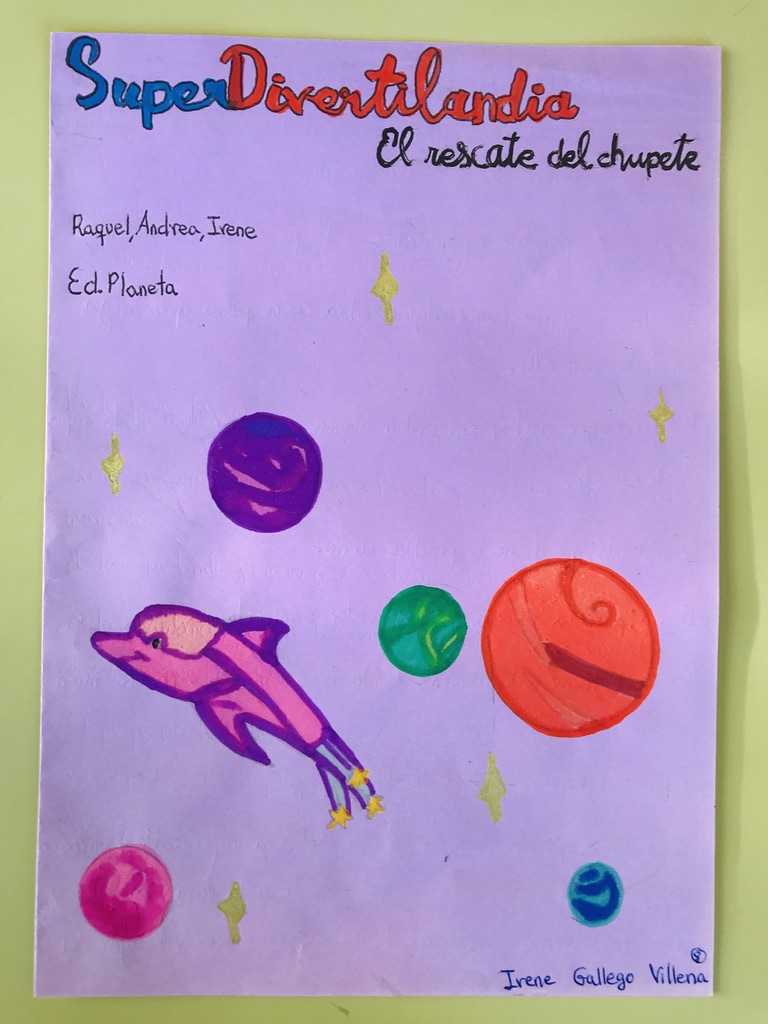 SuperDivertilandia
El rescate del chupete
Raquel, Andrea, Irene
Ed. Planeta
Irene Gallego Villena